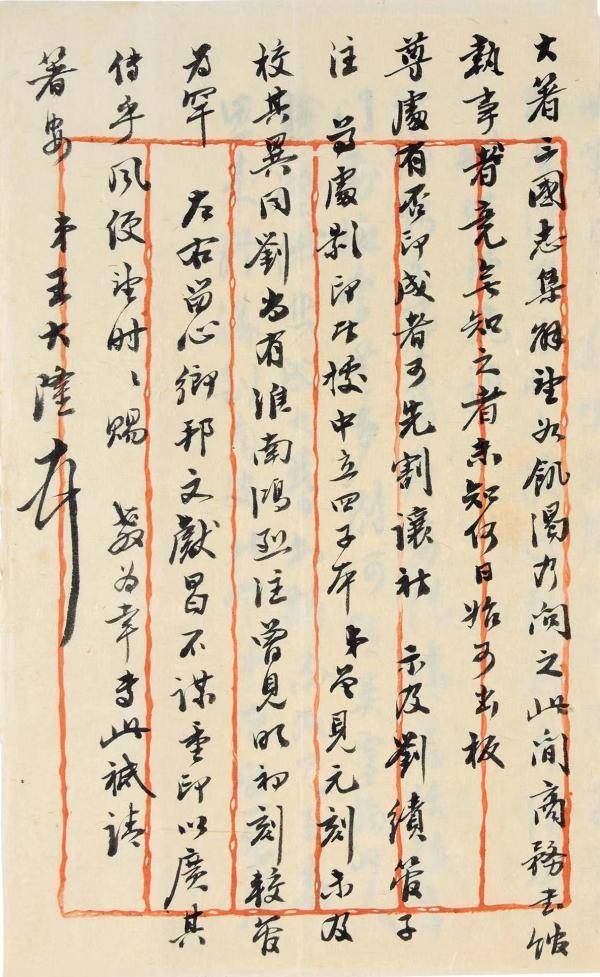 大著三國志集解望如飢渴乃問之此間商務書館
執事者竟無知之者未知何日始可出板
尊處有否印成者可先割讓祈 示及劉績管子
注 尊處影印能據中立四子本 弟曾見元刻未及
校其異同劉尚有淮南鴻烈注曾見明初刻較管
為罕 左右留心鄉邦文獻曷不謀重印以廣其
傳乎風便望時〻賜 教為幸專此祗請
著安 弟王大隆